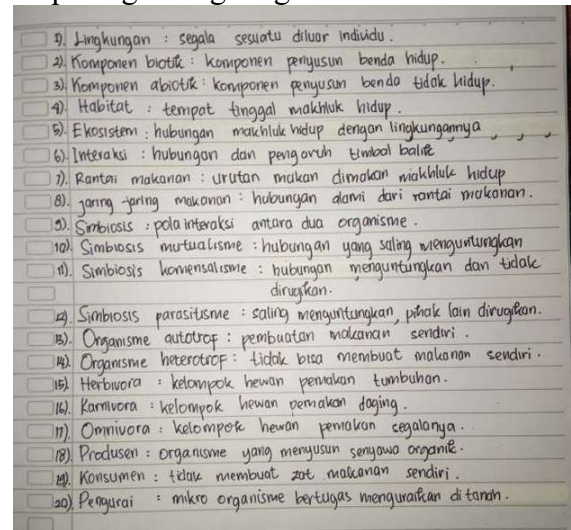 1). Lingkungan : segala sesuatu diluar individu.
2). Komponen biotik : komponen penyusun benda hidup.
3). Komponen abiotik : komponen penyusun benda tidak hidup.
4). Habitat : tempat tinggal makhluk hidup.
5). Ekosistem : hubungan makhluk hidup dengan lingkungannya
6). Interaksi : hubungan dan pengaruh timbal balik
7). Rantai makanan : urutan makan dimakan makhluk hidup
8). jaring-jaring makanan : hubungan alami dari rantai makanan.
9). Simbiosis : pola interaksi antara dua organisme.
10). Simbiosis mutualisme : hubungan yang saling menguntungkan
11). Simbiosis komensalisme : hubungan menguntungkan dan tidak
dirugikan.
12). Simbiosis parasitisme : saling menguntungkan, pihak lain dirugikan.
13). Organisme autotrof : pembuatan makanan sendiri.
14). Organisme heterotrof : tidak bisa membuat makanan sendiri.
15). Herbivora : kelompok hewan pemakan tumbuhan.
16). Karnivora : kelompok hewan pemakan daging.
17). Omnivora : kelompok hewan pemakan segalanya.
18). Produsen : organisme yang menyusun senyawa organik.
19). Konsumen : tidak membuat zat makanan sendiri.
20). Pengurai : mikro organisme bertugas menguraikan di tanah.